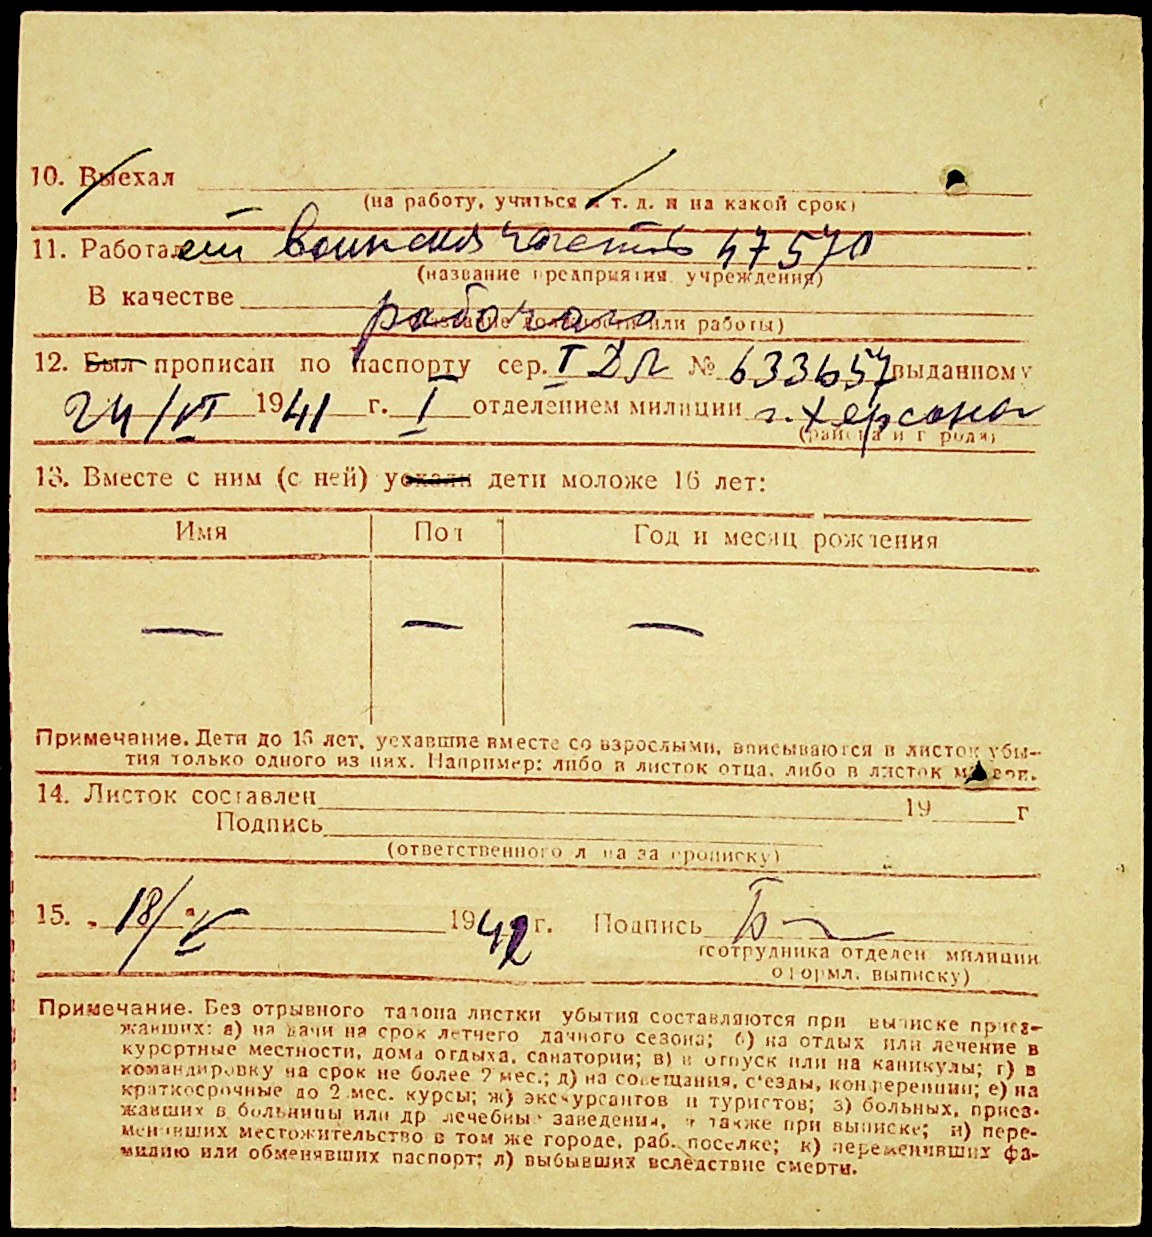 10. Выехал
(на работу, учиться и т. д. и на какой срок)
11. Работает воинская часть 47570
(название предприятия, учреждения)
В качестве рабочего
(название должности или работы)
12. Был прописан по паспорту сер. I ДЛ № 633657 выданному
24/VI 1941 г. I отделением милиции г. Херсона
(района и города)
13. Вместе с ним (с ней) уехали дети моложе 16 лет:
Имя Пол Год и месяц рождения
— — —
Примечание. Дети до 16 лет, уехавшие вместе со взрослыми, вписываются в листок убы-
тия только одного из них. Например: либо в листок отца, либо в листок матери.
14. Листок составлен 19 г
Подпись
(ответственного лица за прописку)
15. „18/V" 1942 г. Подпись
(сотрудника отделен милиции
оформл. выписку)
Примечание. Без отрывного талона листки убытия составляются при выписке приез-
жавших: а) на дачи на срок летнего дачного сезона; б) на отдых или лечение в
курортные местности, дома отдыха, санатории; в) в отпуск или на каникулы; г) в
командировку на срок не более 2 мес.; д) на совещания, с'езды, конференции; е) на
краткосрочные до 2 мес. курсы; ж) экскурсантов и туристов; з) больных, приез-
жавших в больницы или др лечебные заведения, а также при выписке; и) пере-
менивших местожительство в том же городе, раб. поселке; к) переменивших фа-
милию или обменявших паспорт; л) выбывших вследствие смерти.